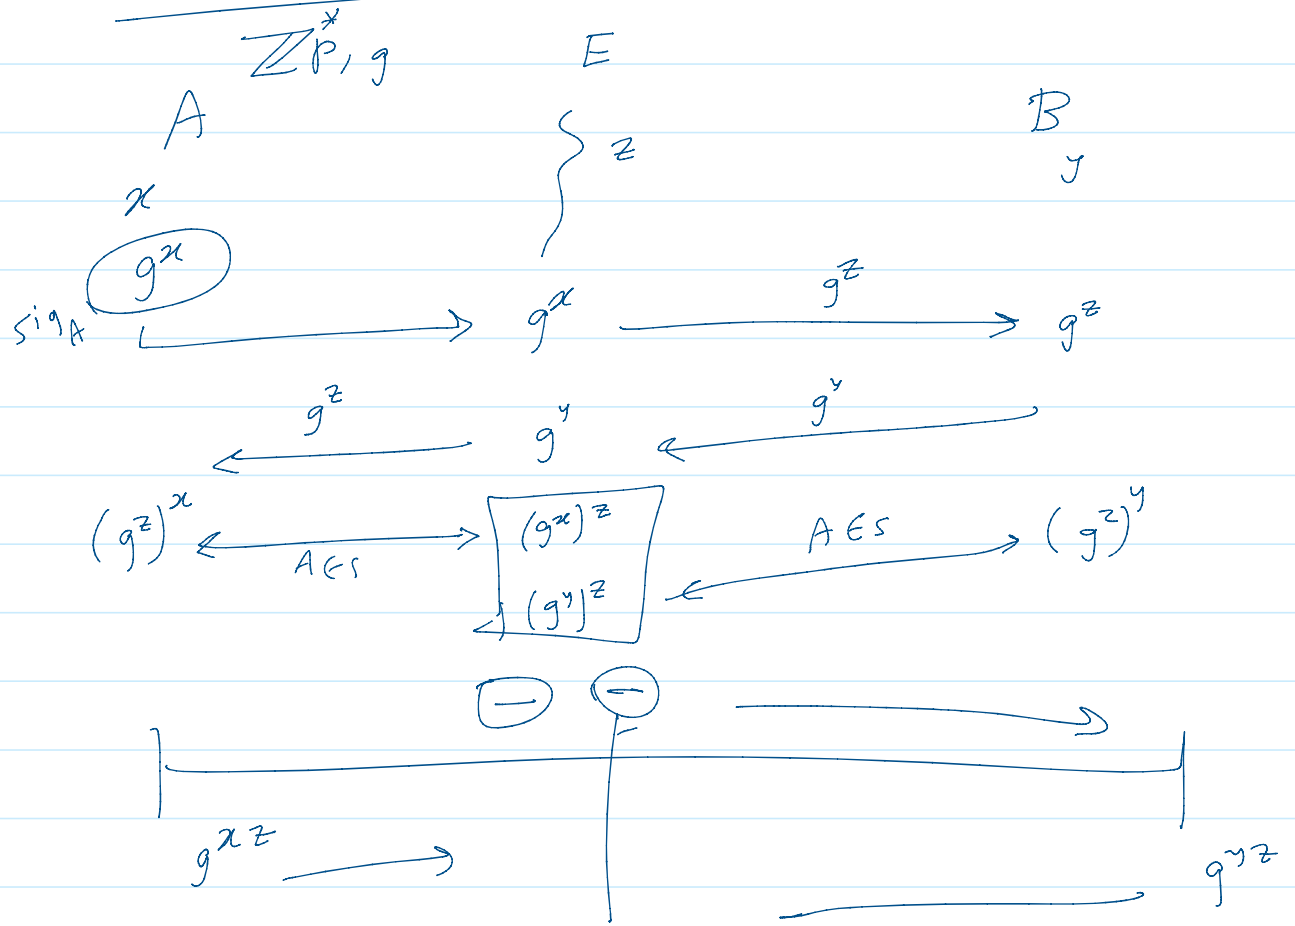 ℤp*, g E
A z B
x y
g^x
sig_A g^x g^z g^z
g^z g^y g^y
(g^z)^x AES (g^x)^z AES (g^z)^y
(g^y)^z
g^xz g^yz